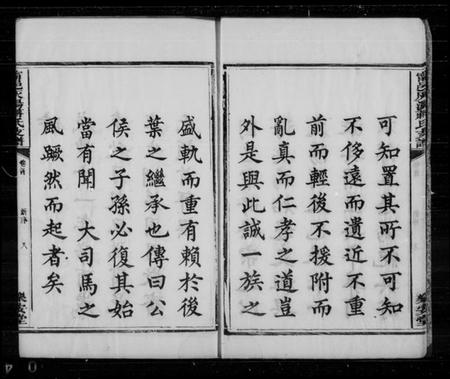 可知置其所不可知
不侈遠而遺近不重
前而輕後不援附而
亂真而仁孝之道豈
外是興此誠一族之
盛軌而重有賴於後
葉之繼承也傳曰公
侯之子孫必復其始
當有聞 大司馬之
風蹶然而起者矣
卷首
樂安堂